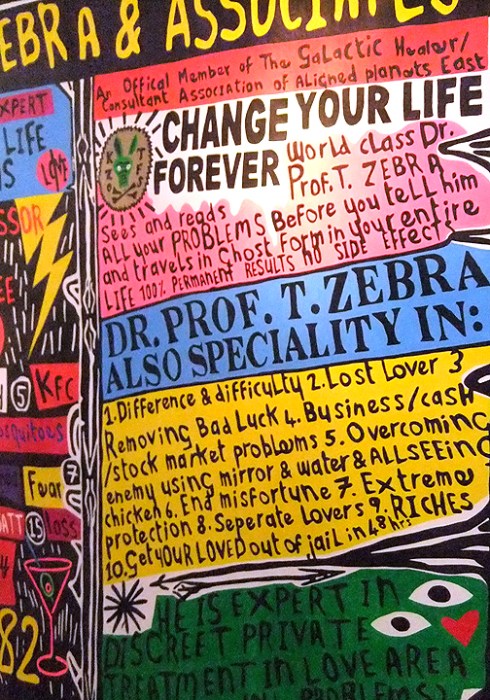 EBRA & ASSOCIATES
An Offical Member of The Galactic Healer/
Consultant Association of Aligned planets East
CHANGE YOUR LIFE
FOREVER
World class Dr.
Prof. T. ZEBRA
Sees and reads
ALL your PROBLEMS Before you tell him
and travels in Ghost Form in your entire
LIFE 100% PERMANENT RESULTS no SIDE EFFECTS
DR. PROF. T. ZEBRA
ALSO SPECIALITY IN:
1. Difference & difficulty 2. Lost Lover 3
Removing Bad Luck 4. Business/cash
/stock market problems 5. Overcoming
enemy using mirror & water & ALLSEEing
chicken 6. End misfortune 7. Extreme
protection 8. Seperate Lovers 9. RICHES
10. Get YOUR LOVED out of jail in 48 hrs
HE IS EXPERT in
DISCREET PRIVATE
TREATMENT in LOVE AREA
XPERT
LIFE
LOVE
SSOR
5 KFC
osquitoes
Fear 7
ATT 15 loss
82